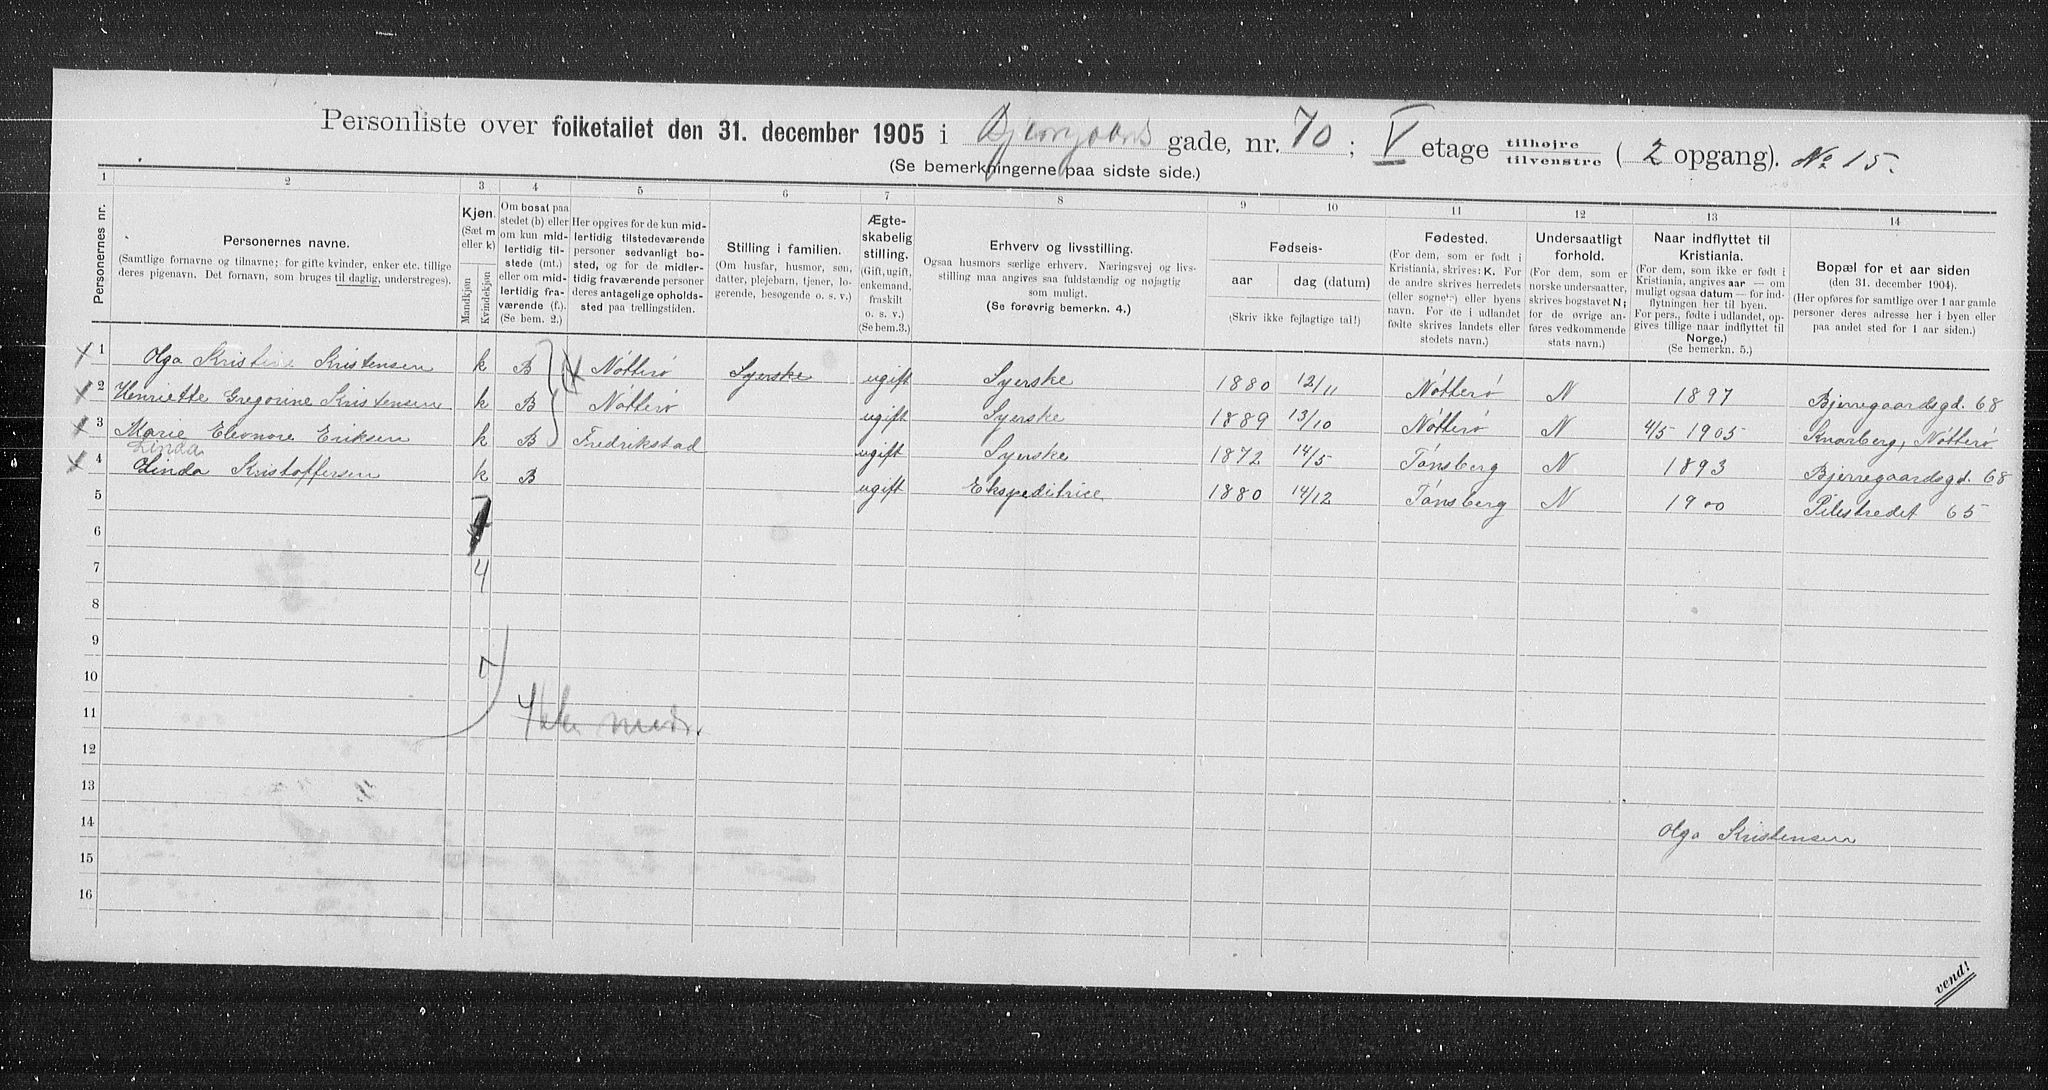 Personliste over folketallet den 31. december 1905 i Bjerregaards gade, nr. 70 ; V etage tilhøjre tilvenstre ( 2 opgang). No 15.
(Se bemerkningerne paa sidste side.)
1 2 3 4 5 6 7 8 9 10 11 12 13 14
Personernes nr.
Personernes navne.
(Samtlige fornavne og tilnavne; for gifte kvinder, enker etc. tillige
deres pigenavn. Det fornavn, som bruges til daglig, understreges).
Kjøn.
(Sæt m
eller k)
Mandkjøn
Kvindekjøn
Om bosat paa
stedet (b) eller
om kun mid-
lertidig til-
stede (mt.)
eller om mid-
lertidig fra-
værende (f.).
(Se bem. 2.)
Her opgives for de kun mid-
lertidig tilstedeværende
personer sedvanligt bo-
sted, og for de midler-
tidig fraværende personer
deres antagelige opholds-
sted paa tællingstiden.
Stilling i familien.
(Om husfar, husmor, søn,
datter, plejebarn, tjener, lo-
gerende, besøgende o. s. v.)
Ægte-
skabelig
stilling.
(Gift, ugift,
enkemand,
fraskilt
o. s. v.)
(Se bem.3.)
Erhverv og livsstilling.
Ogsaa husmors særlige erhverv. Næringsvej og livs-
stilling maa angives saa fuldstændig og nøjagtig
som muligt.
(Se forøvrig bemerkn. 4.)
Fødseis-
aar dag (datum)
(Skriv ikke fejlagtige tal!)
Fødested.
(For dem, som er født i
Kristiania, skrives: K. For
de andre skrives herredets
(eller sognets) eller byens
navn. For de i udlandet
fødte skrives landets eller
stedets navn.)
Undersaatligt
forhold.
(For dem, som er
norske undersaatter,
skrives bogstavet N;
for de øvrige an-
føres vedkommende
stats navn.)
Naar indflyttet til
Kristiania.
(For dem, som ikke er født i
Kristiania, angives aar — om
muligt ogsaa datum — for ind-
flytningen her til byen.
For pers., fødte i udlandet, op-
gives tillige naar indflyttet til
Norge.)
(Se bemerkn. 5.)
Bopæl for et aar siden
(den 31. december 1904).
(Her opføres for samtlige over 1 aar gamle
personer deres adresse her i byen eller
paa andet sted for 1 aar siden.)
1 Olga Kristine Kristensen k B Nötterö Syerske ugift Syerske 1880 12/11 Nötterö N 1897 Bjerregaardsgd. 68
2 Henriette Gregorine Kristensen k B Nötterö ugift Syerske 1889 13/10 Nötterö N 4/5 1905 Knarberg, Nötterö
3 Marie Eleonore Eriksen k B Fredrikstad ugift Syerske 1872 14/5 Tönsberg N 1893 Bjerregaardsgd. 68
Linda
4 Linda Kristoffersen k B ugift Ekspeditrice 1880 14/12 Tönsberg N 1900 Pilestredet 65
5
6
7 4
8
9
10
11
12
13
14 Olga Kristensen
15
16
vend!